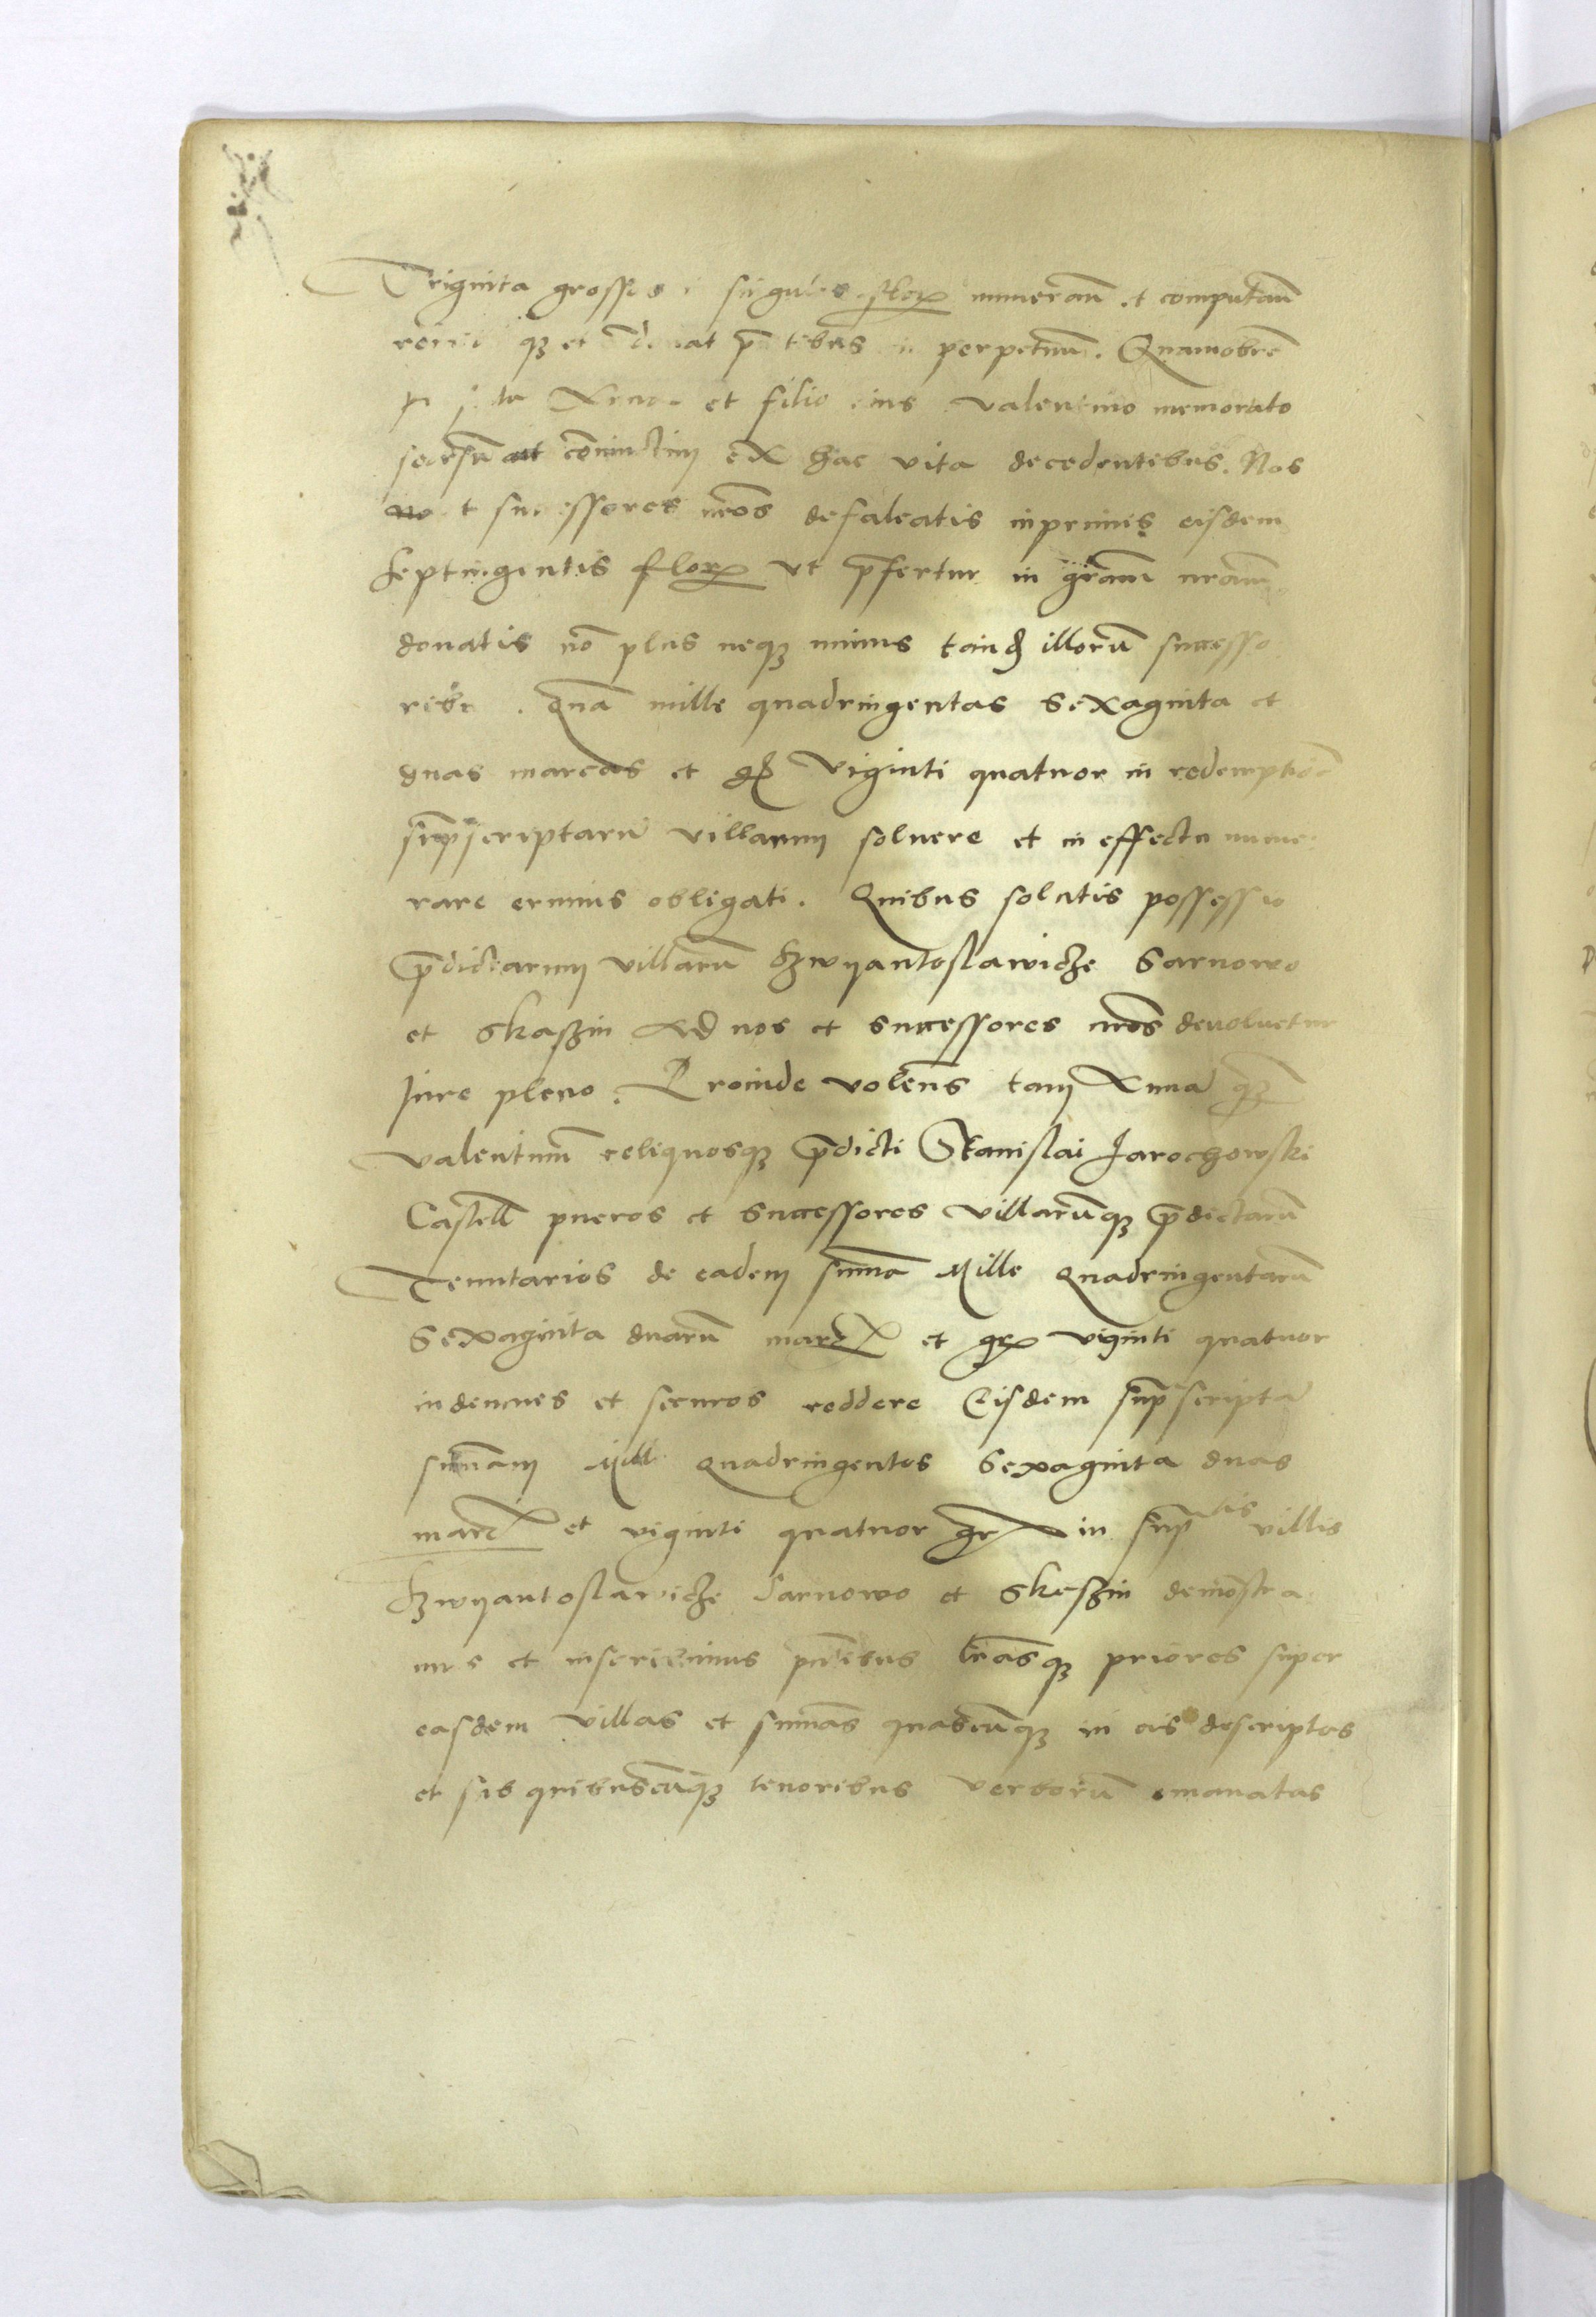 Triginta grossos singulos flor numeran̄ et computan̄
q̨ et perpetuum. Quamobrē
et filio eius Valentino memorato
seorsū aut coniunctim ex hac vita decedentibus. Nos
et successores nr̄os defalcatis inprimis eisdem
septingentis flor ut p̄fertur in gr̄am nr̄am
donatis nō plus neq̨ minus tandē illorū successo
ribus. Quā mille quadringentas sexaginta et
duas marcas et gr viginti quatuor in redemptiōe
supʳscriptarū villarum soluere et in effectu nume
rare erimus obligati. Quibus solutis possessio
p̄dictarum villarū Szwyantoslawicze Sarnowo
et Skaszin ad nos et successores nr̄os deuoluetur
Jure pleno. Proinde volen̄s tam Annā q̨
Valentinum reliquosq̨ p̄dicti Stanislai Jarochowski
Castell̄ pueros et successores villarūq̨ p̄dictarū
Tenutarios de eadem sum̄a Mille Quadringentarū
Sexaginta duarū marc et gr viginti quatuor
indemnes et securos reddere Eisdem supʳscriptā
sum̄am Mill Quadringentos Sexaginta duas
marc et viginti quatuor gr in supʳtis villis
Szwyantoslawicze Sarnowo et Skaszin demōstra
mus et inscribimus pn̄tibus lr̄asq̨ priores super
easdem villas et sum̄as quascūq̨ in eis descriptas
et sub quibuscūq̨ tenoribus verborū emanatas